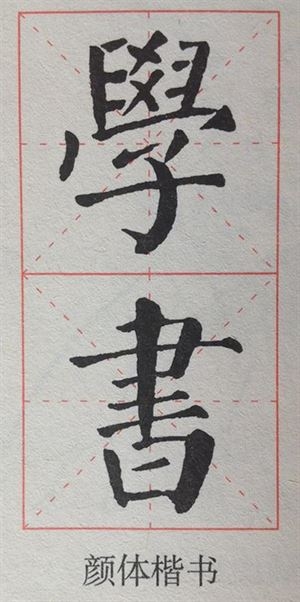 學
書
颜体楷书